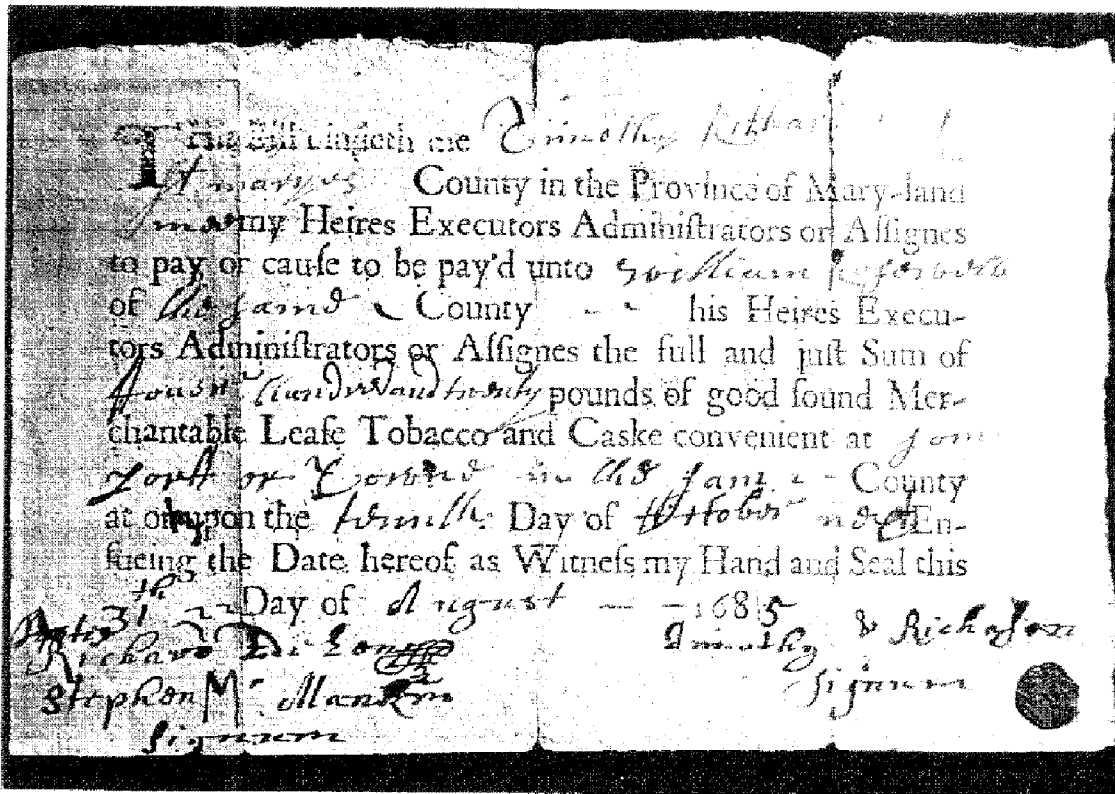 This Bill bindeth me Timothy
St maryes County in the Province of Mary-land
my Heires Executors Adminiſtrators or Aſſignes
to pay or cauſe to be pay'd unto William
of the ſame County his Heires Execu-
tors Adminiſtrators or Aſſignes the full and juſt Sum of
hundred and twenty pounds of good ſound Mer-
chantable Leafe Tobacco and Caske convenient at
in the ſame County
at or upon the tennth Day of October next En-
ſueing the Date hereof as Witneſs my Hand and Seal this
31th Day of August 1685
Richard Timothy Richaſon
Stephen M signum
signum